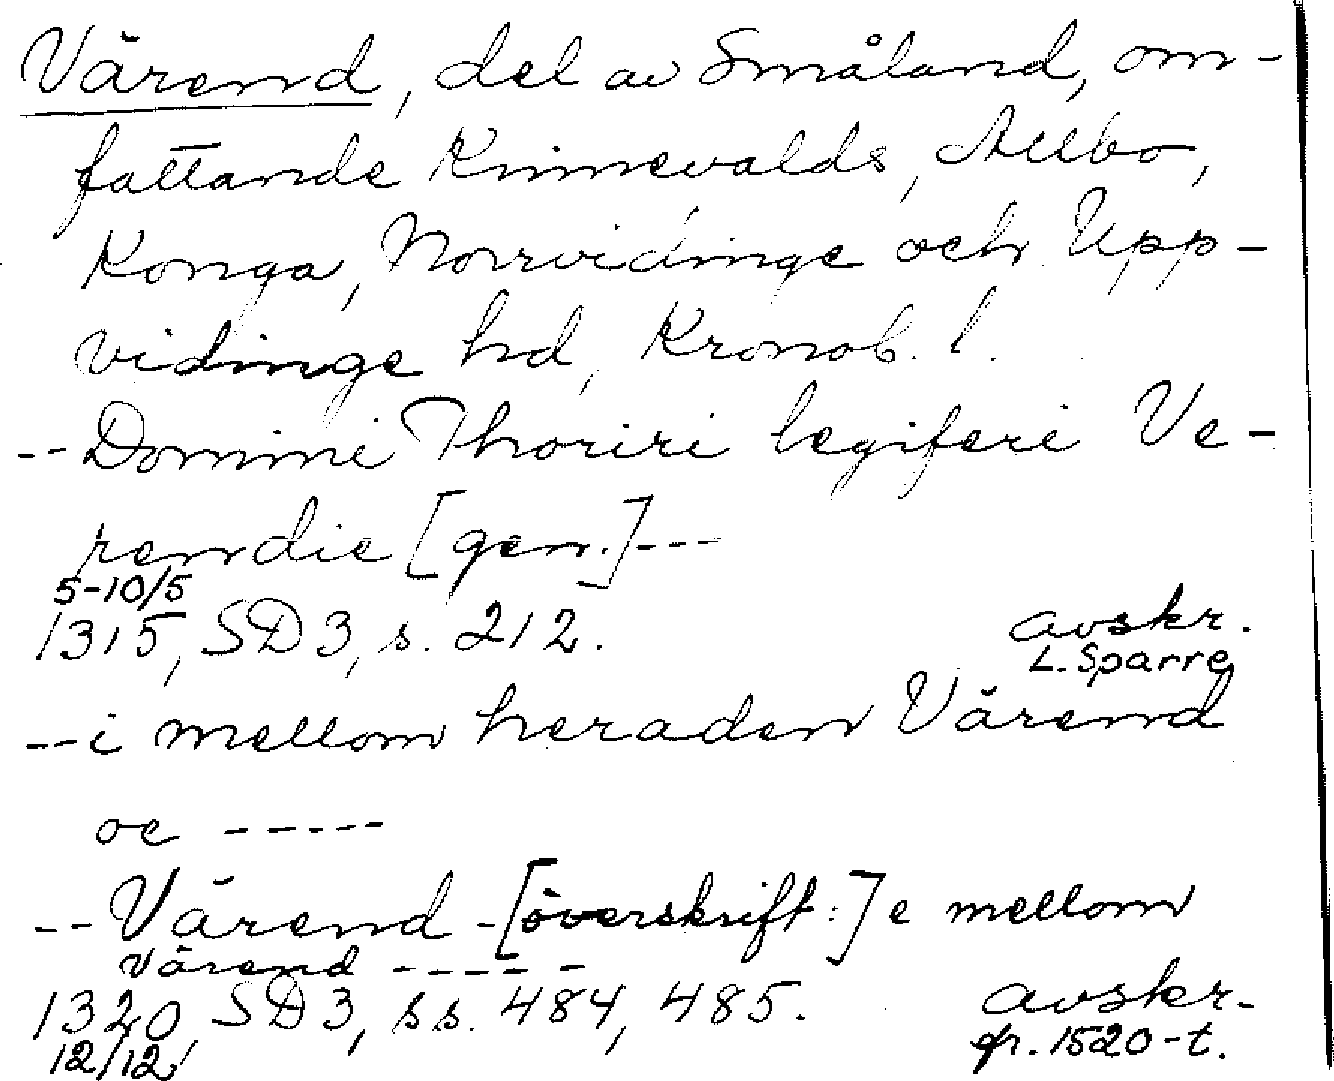 Värend, del av Småland, om-
fattande Kinnevalds, Allbo,
Konga, Norrvidinge och Upp-
vidinge hd, Kronob. l.
-- Domini Thoriri legiferi Ve-
rendie [gen.]---
5-10/5
1315, SD 3, s. 212.
avskr.
L. Sparre
-- i mellom heraden Värend
oc -----
-- Värend - [överskrift:] e mellom
Värend -----
1320 SD 3, ss. 484, 485.
12/12
avskr.
fr. 1520-t.